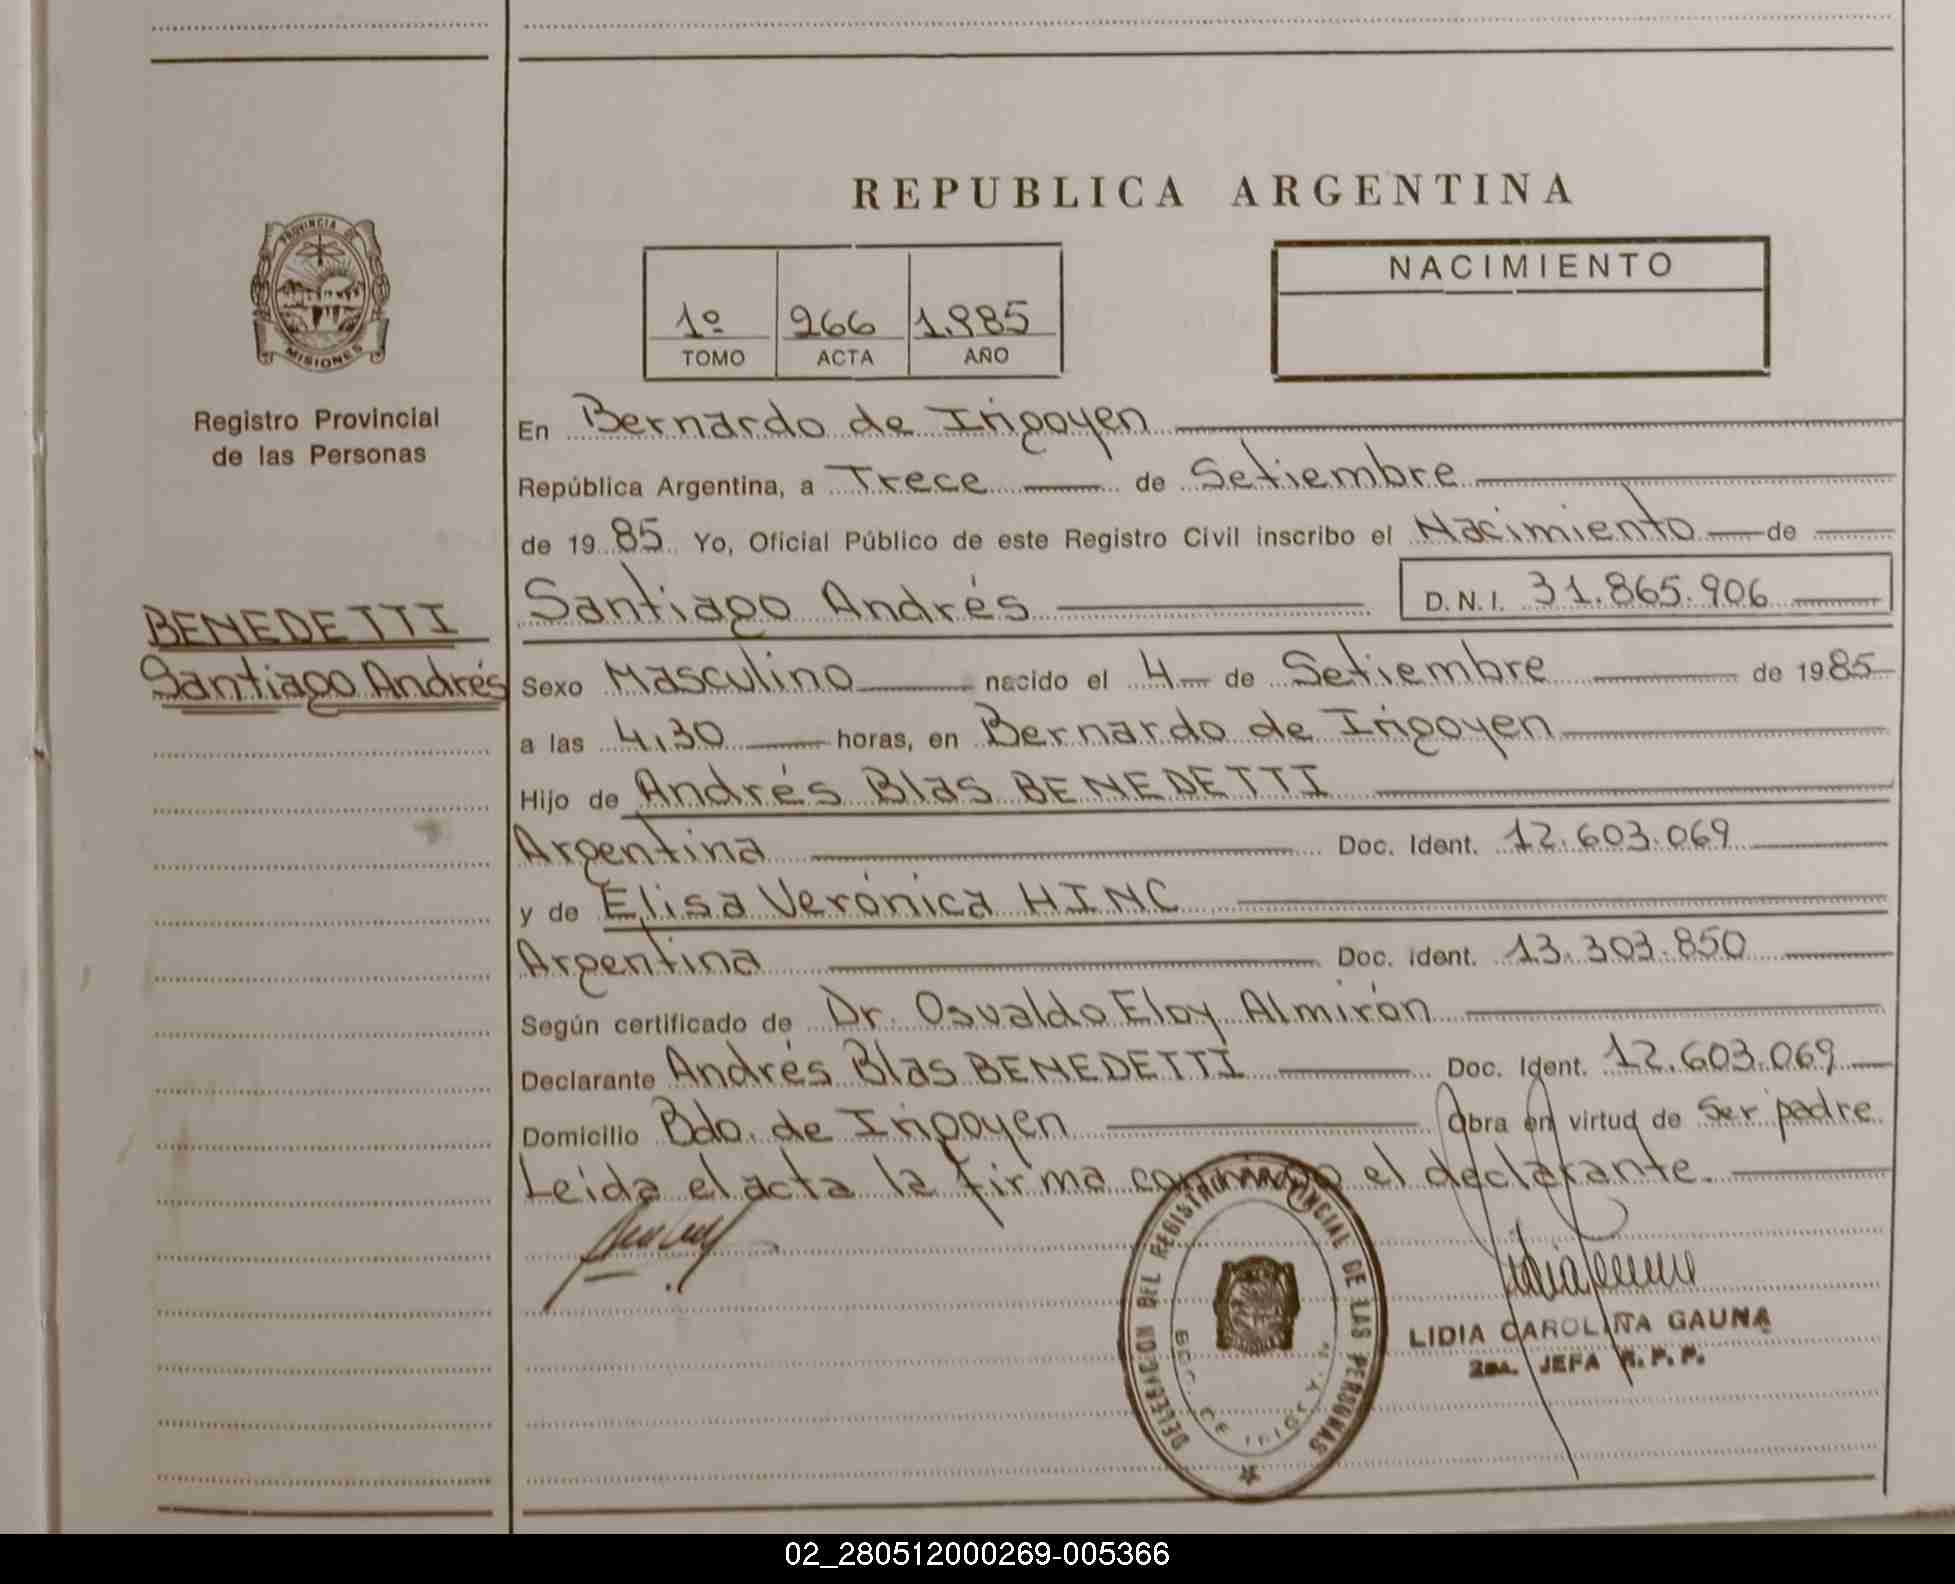 REPUBLICA ARGENTINA
PROVINCIA DE
MISIONES
Registro Provincial
de las Personas
1º 266 1.985
TOMO ACTA AÑO
NACIMIENTO
En Bernardo de Irigoyen
República Argentina, a Trece de Setiembre
de 1985 Yo, Oficial Público de este Registro Civil inscribo el Nacimiento de
Santiago Andrés D.N.I. 31.865.906
BENEDETTI
Santiago Andrés
Sexo Masculino nacido el 4 de Setiembre de 1985
a las 4,30 horas, en Bernardo de Irigoyen
Hijo de Andrés Blas BENEDETTI
Argentina Doc. Ident. 12.603.069
y de Elisa Verónica HINC
Argentina Doc. Ident. 13.303.850
Según certificado de Dr. Osvaldo Eloy Almirón
Declarante Andrés Blas BENEDETTI Doc. Ident. 12.603.069
Domicilio Bdo. de Irigoyen Obra en virtud de Ser padre
Leida el acta la firma conmigo el declarante.
DELEGACION DEL REGISTRO PROVINCIAL DE LAS PERSONAS
LIDIA CAROLINA GAUNA
2da. JEFA R.P.P.
02_280512000269-005366